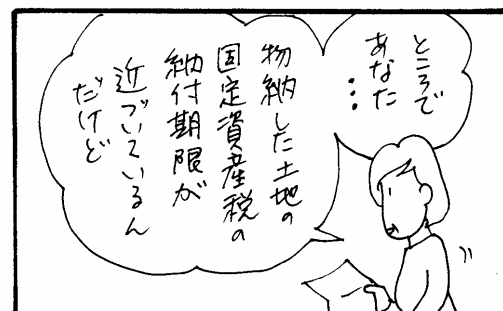 ところで
あなた
・・・
物納した土地の
固定資産税の
納付期限が
近づいているん
だけど